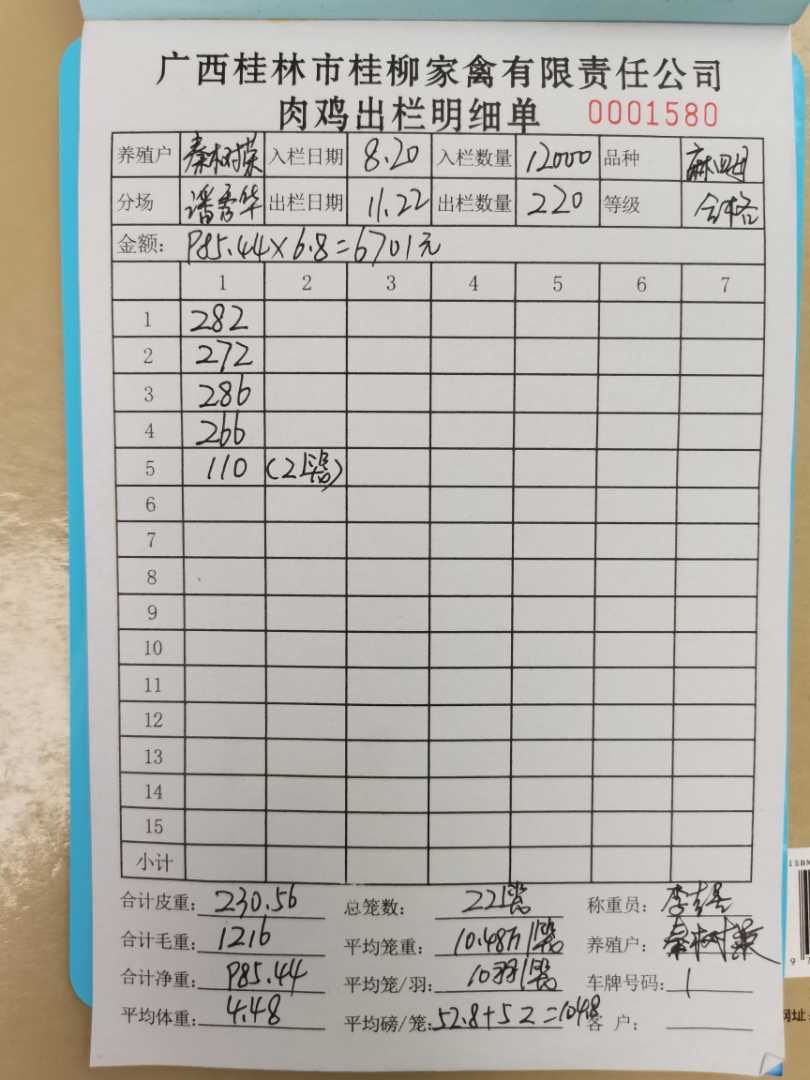 广西桂林市桂柳家禽有限责任公司
肉鸡出栏明细单 0001580
养殖户 秦树荣 入栏日期 8.20 入栏数量 12000 品种
分场 潘秀华 出栏日期 11.22 出栏数量 220 等级 合格
金额: 985.44×6.8=6701元
1 2 3 4 5 6 7
1 282
2 272
3 286
4 266
5 110 (2笼)
6
7
8
9
10
11
12
13
14
15
小计
合计皮重: 230.56 总笼数: 22笼 称重员:
合计毛重: 1216 平均笼重: 10.48斤/笼 养殖户: 秦树荣
合计净重: 985.44 平均笼/羽: 10羽/笼 车牌号码: /
平均体重: 4.48 平均磅/笼: 52.8+52=1048 客户:
ISBN
网址: